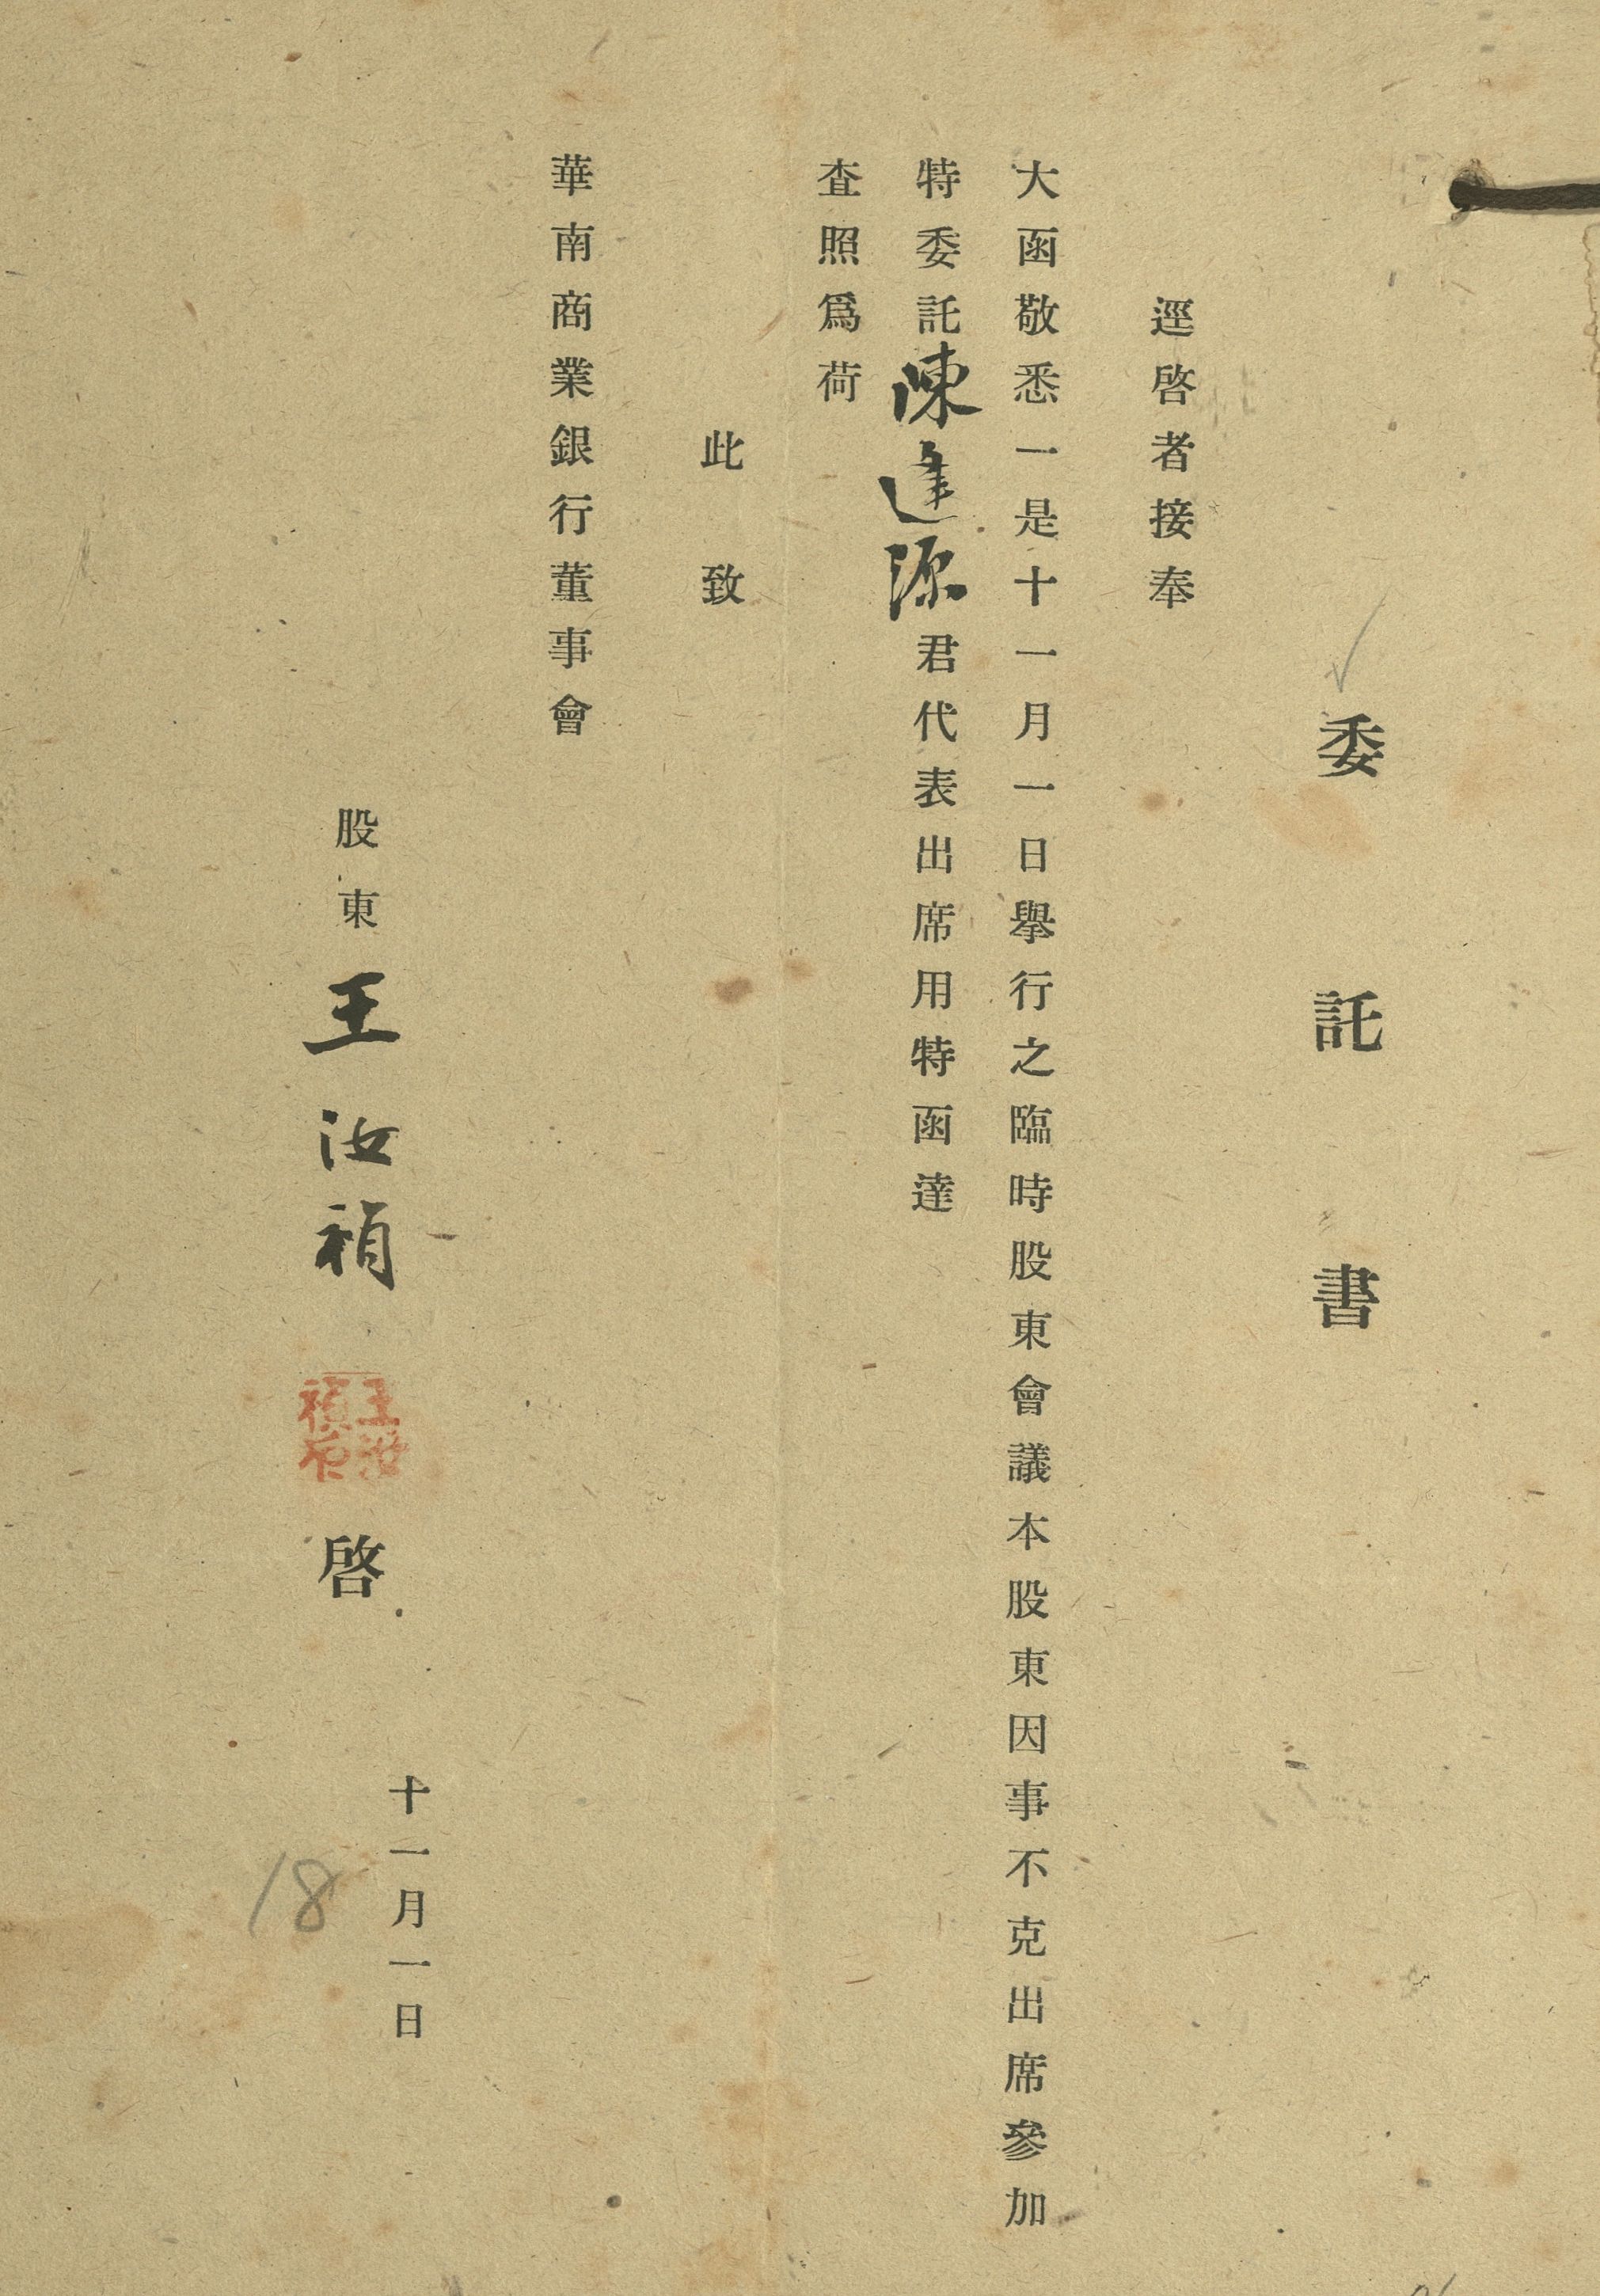 委託書
逕啓者接奉
大函敬悉一是十一月一日擧行之臨時股東會議本股東因事不克出席參加
特委託陳逢源君代表出席用特函達
查照爲荷
此致
華南商業銀行董事會
股東王汝禎啓
王汝禎印
十一月一日
18